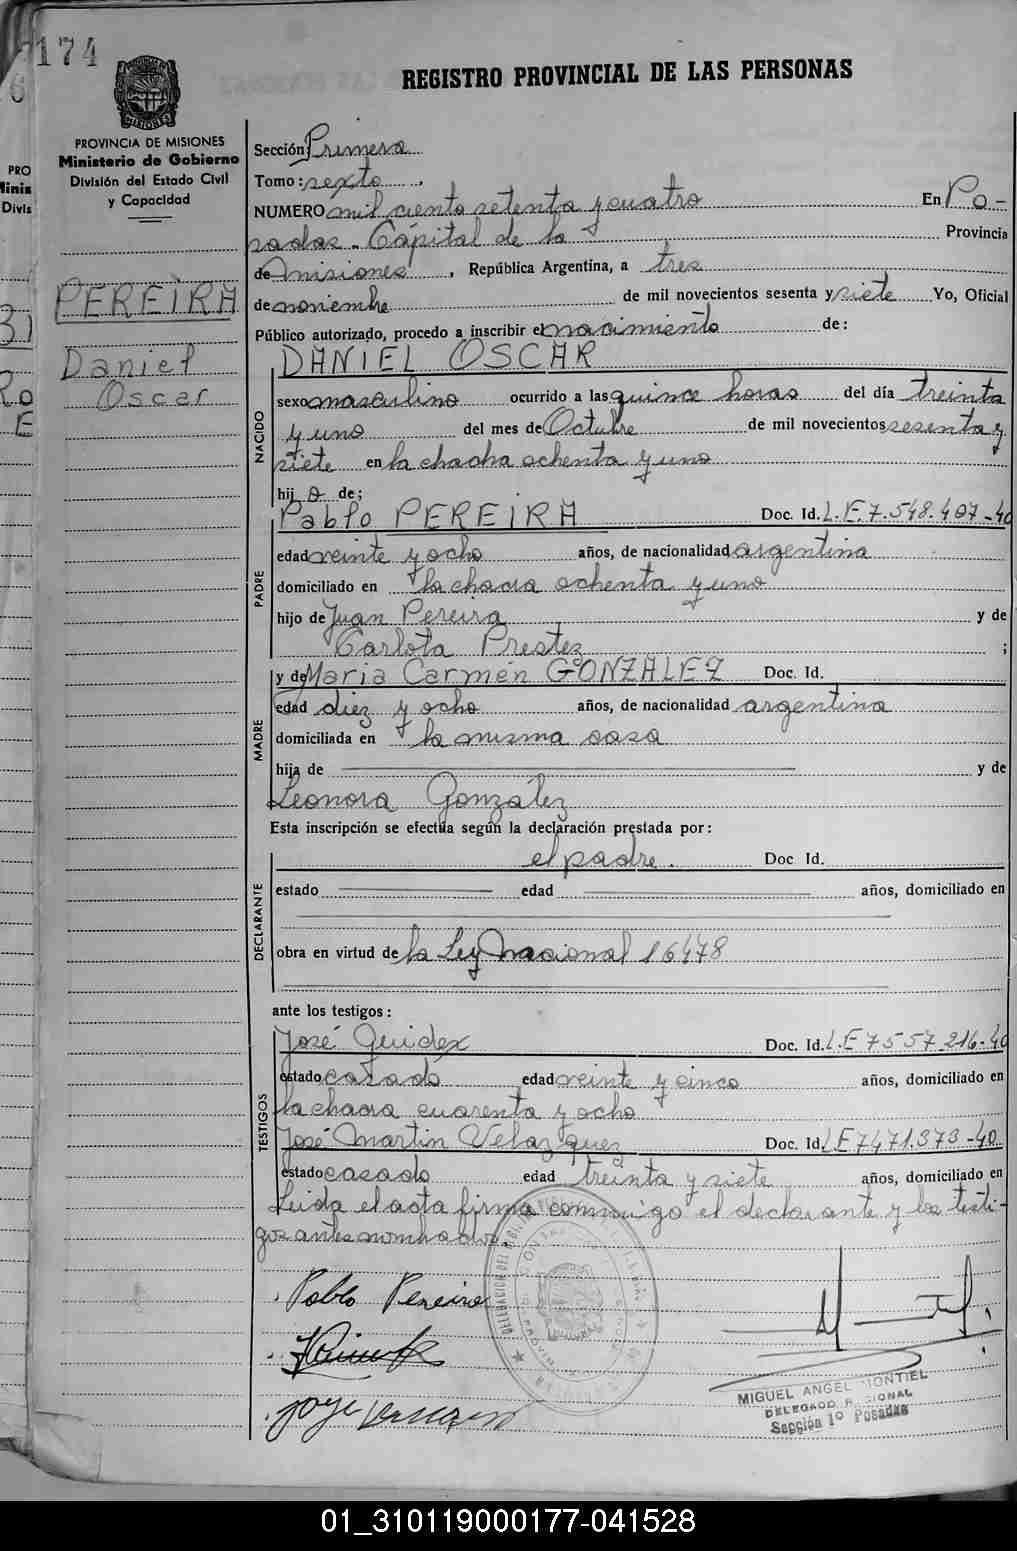 174
REGISTRO PROVINCIAL DE LAS PERSONAS
PROVINCIA DE MISIONES
Ministerio de Gobierno
División del Estado Civil
y Capacidad
PEREIRA
Daniel
Oscar
Sección: Primera
Tomo: sexto
NUMERO mil ciento setenta y cuatro En Po-
sadas - Capital de la Provincia
de Misiones, República Argentina, a tres
de noviembre de mil novecientos sesenta y siete Yo, Oficial
Público autorizado, procedo a inscribir el nacimiento de:
DANIEL OSCAR
NACIDO
sexo masculino ocurrido a las quince horas del día treinta
y uno del mes de Octubre de mil novecientos sesenta y
siete en la chacra ochenta y uno
hijo de;
Pablo PEREIRA Doc. Id. L.E. 7.548.407-40
PADRE
edad veinte y ocho años, de nacionalidad argentina
domiciliado en la chacra ochenta y uno
hijo de Juan Pereira y de
Carlota Prestez ;
y de Maria Carmen GONZALEZ Doc. Id.
MADRE
edad diez y ocho años, de nacionalidad argentina
domiciliada en la misma casa
hija de y de
Leonora González
Esta inscripción se efectúa según la declaración prestada por:
el padre. Doc Id.
DECLARANTE
estado edad años, domiciliado en
obra en virtud de la Ley Nacional 16478
ante los testigos:
José Guidex Doc. Id. L.E 7557.216-40
TESTIGOS
estado casado edad veinte y cinco años, domiciliado en
la chacra cuarenta y ocho
José Martin Velazquez Doc. Id. L.E 7471.373-40
estado casado edad treinta y siete años, domiciliado en
Leida el acta firma conmigo el declarante y los testi-
gos antes nombrados.
Pablo Pereira
MIGUEL ANGEL MONTIEL
DELEGADO
Sección 1º Posadas
01_310119000177-041528